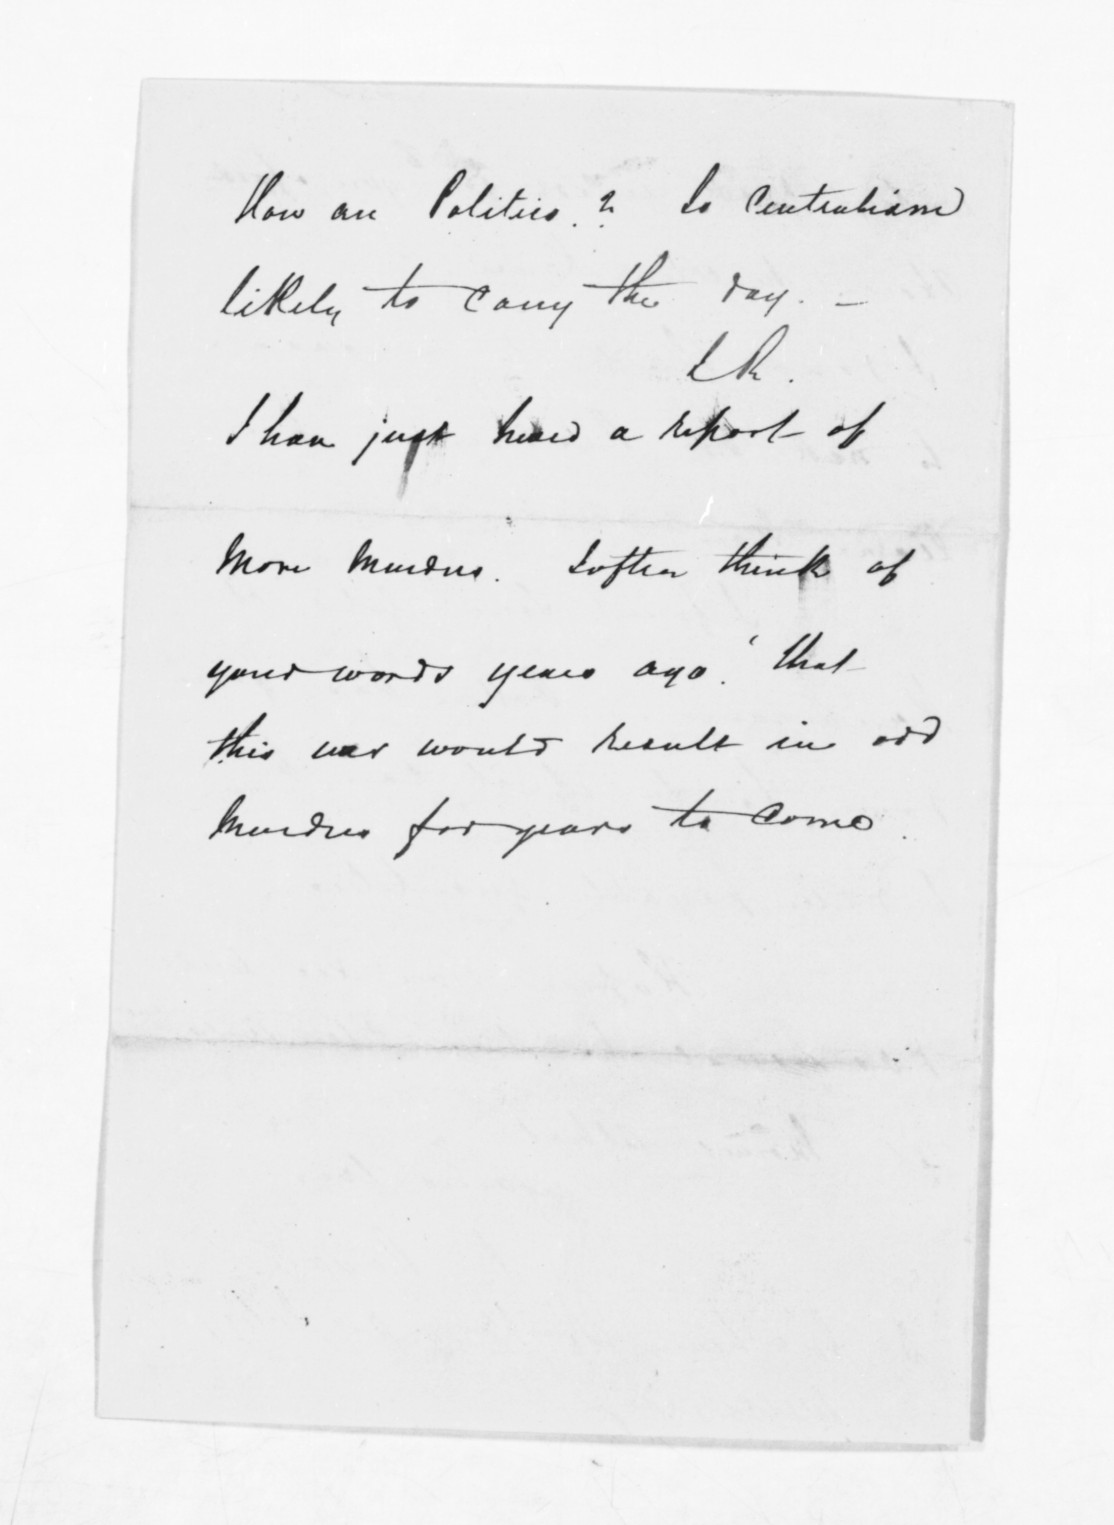 How are Politics.? Is Centralism
likely to carry the day. —
I have just heard a report of
more murders. I often think of
your words years ago. 'that
this war would result in odd
murders for years to come.